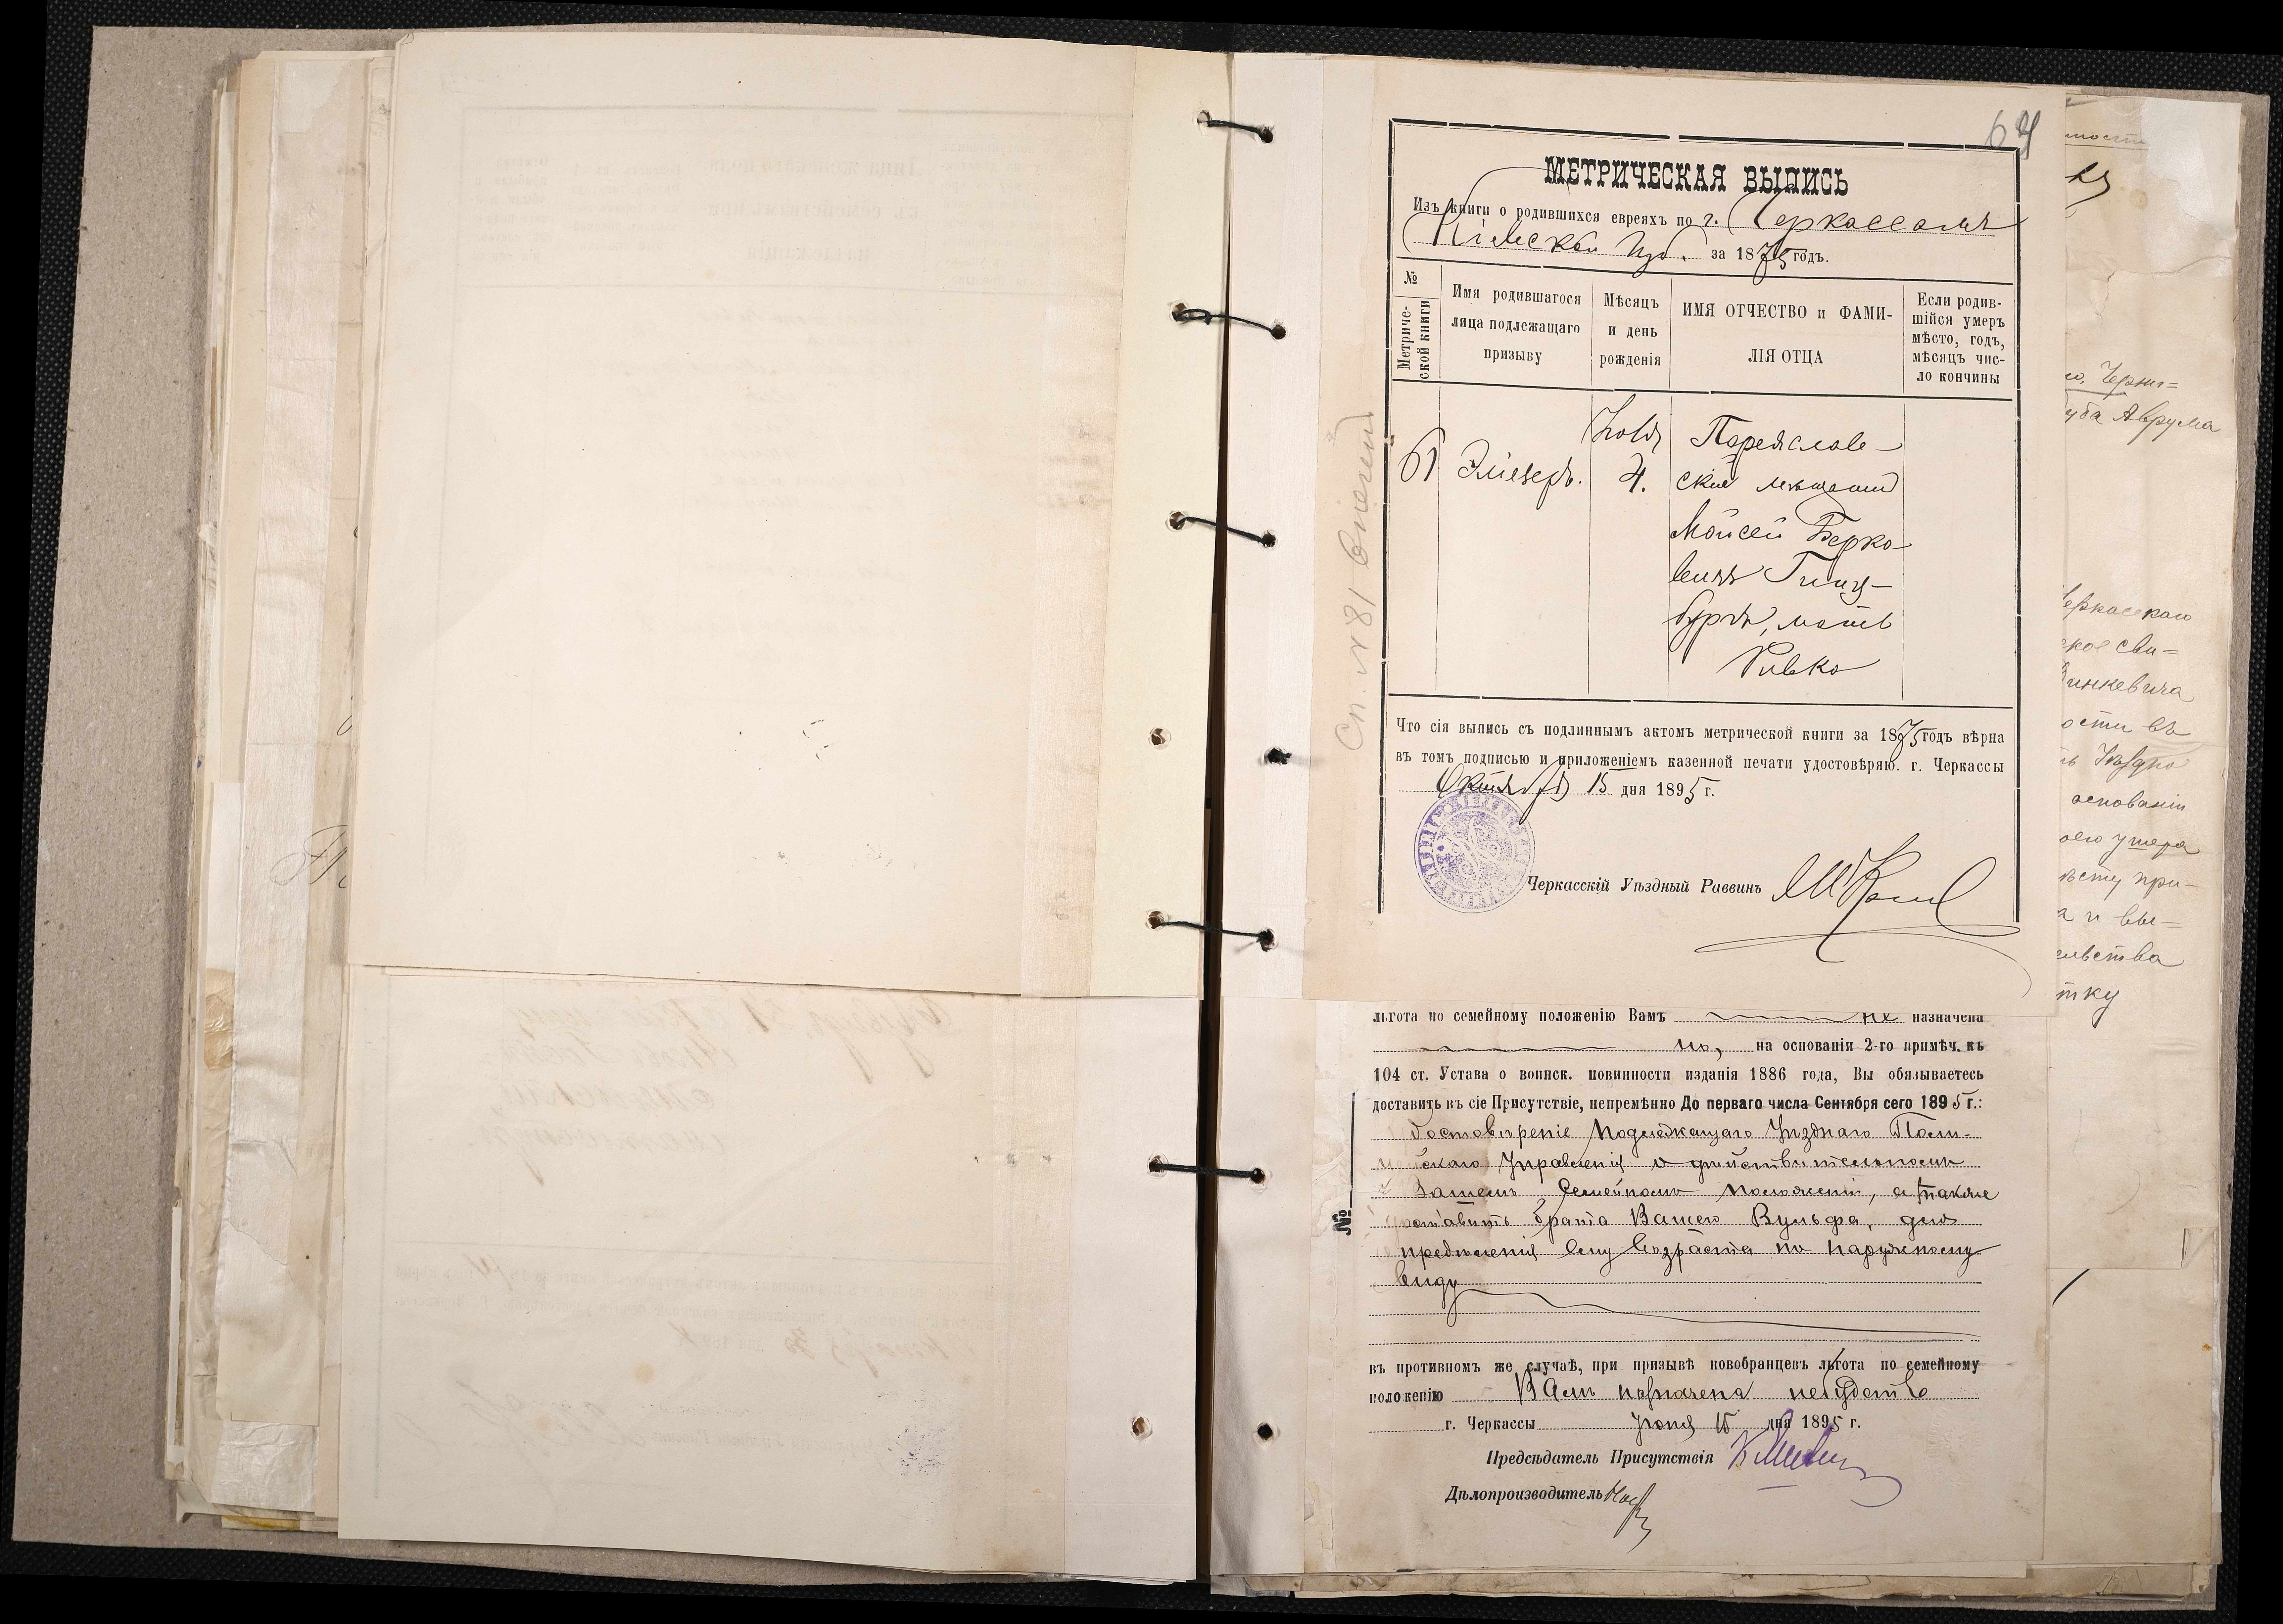 64
МЕТРИЧЕСКАЯ ВЫПИСЬ
Изъ книги о родившихся евреяхъ по г. Черкассамъ
Кіевской губ. за 1875 годъ.
№ Метриче-ской книги
Имя родившагося лица подлежащаго призыву
Мѣсяцъ и день рожденія
ИМЯ ОТЧЕСТВО и ФАМИ-ЛІЯ ОТЦА
Если родив-шійся умеръ мѣсто, годъ, мѣсяцъ чис-ло кончины
61
Эліезеръ.
Ноя.
4.
Переяслав-
скій мѣщанинъ
Мойсей Берко-
вичъ Гинз-
бургъ, мать
Ривка
Сп. № 81
Что сія выпись съ подлиннымъ актомъ метрической книги за 1875 годъ вѣрна
въ томъ подписью и приложеніемъ казенной печати удостовѣряю. г. Черкассы
Октября 15 дня 1895 г.
Черкасскій Уѣздный Раввинъ
льгота по семейному положенію Вамъ не назначена
но, на основаніи 2-го примѣч. къ
104 ст. Устава о воинск. повинности изданія 1886 года, Вы обязываетесь
доставить къ сіе Присутствіе, непремѣнно До перваго числа Сентября сего 1895 г.:
достовѣреніе Подлежащаго Уѣзднаго Поли-
цейскаго Управленія о дѣйствительномъ
Вашемъ Семейномъ положеніи, а также
доставить брата Вашего Вульфа, для
опредѣленія ему возраста по наружному
виду
№
въ противномъ же случаѣ, при призывѣ новобранцевъ льгота по семейному
положенію Вамъ назначена небудетъ
г. Черкассы Іюня 15 дня 1895 г.
Предсѣдатель Присутствія
Дѣлопроизводитель
о, Черни=
Аврума
Черкасскаго
ское сви=
инкевича
ости въ
основаніи
при-
а и вы=
ельства